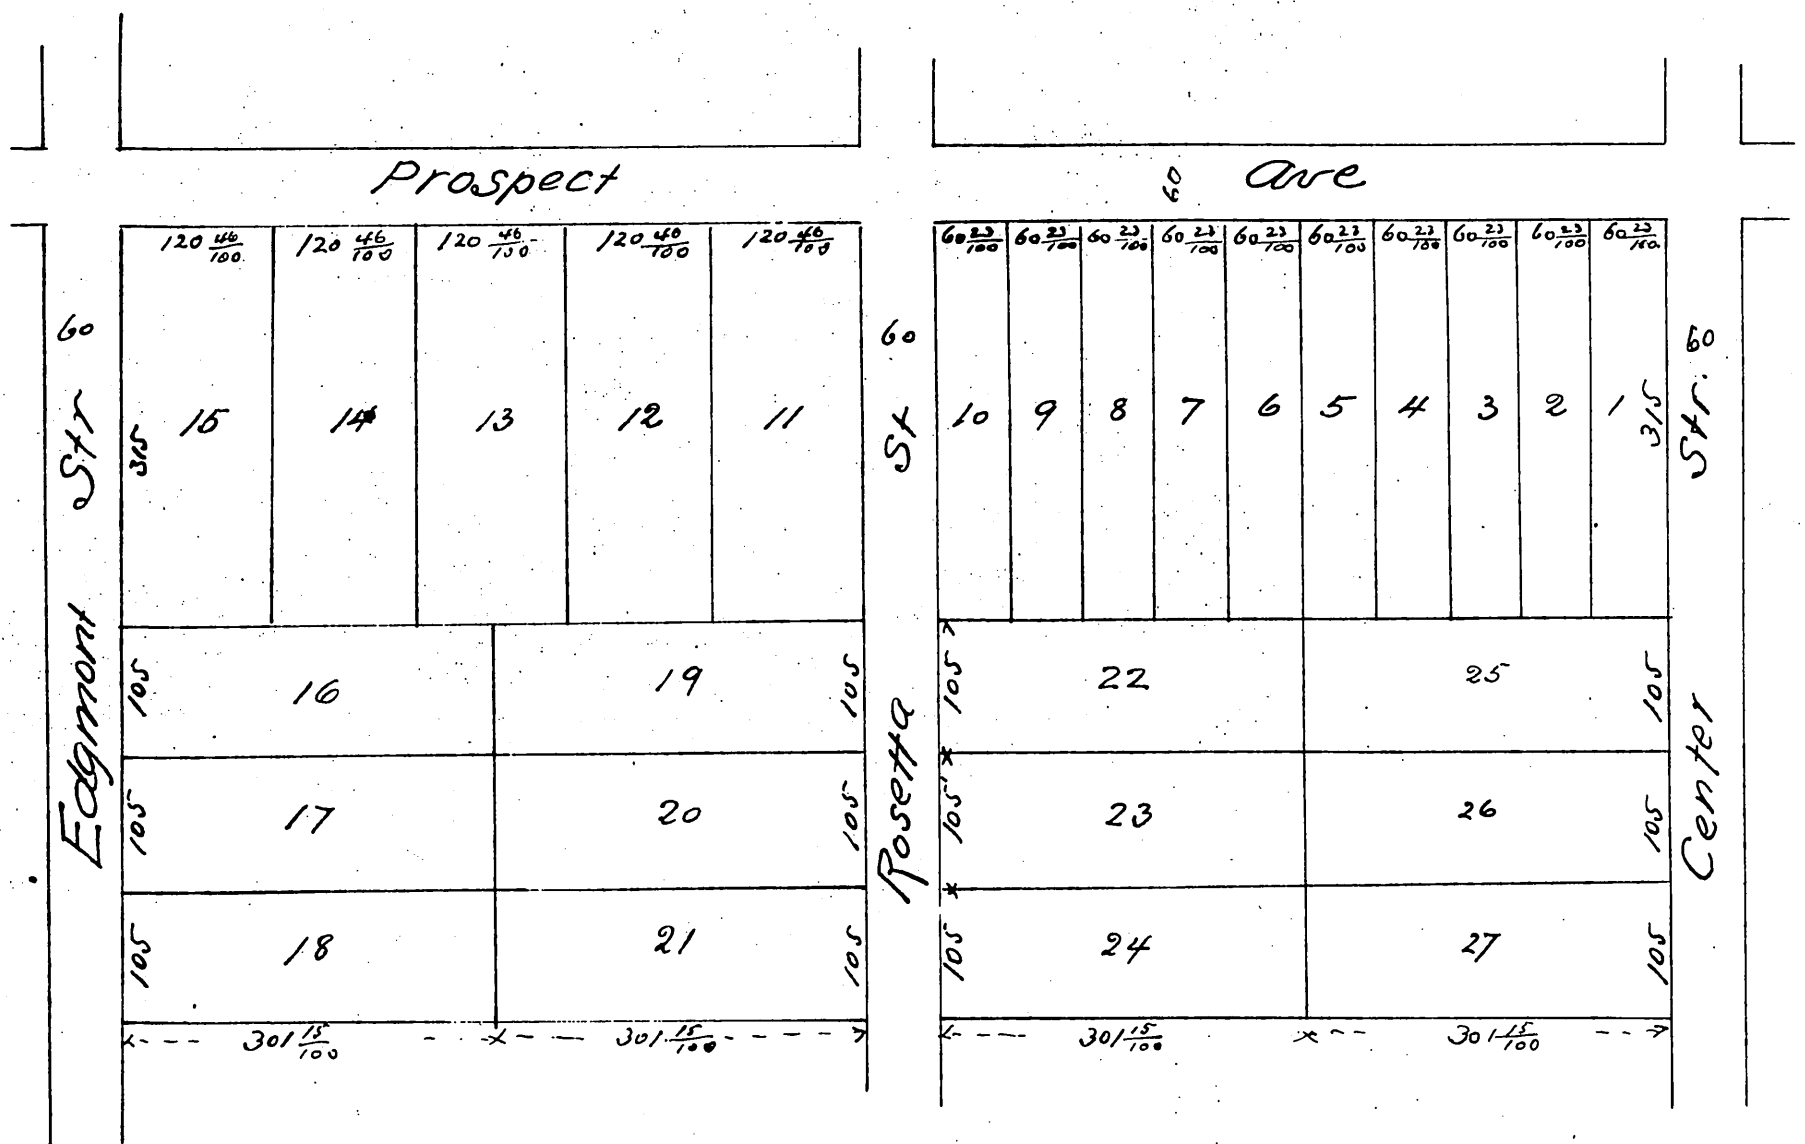 Prospect 60 Ave
120 46/100 120 46/100 120 46/100 120 46/100 120 46/100
60 23/100 60 23/100 60 23/100 60 23/100 60 23/100 60 23/100 60 23/100 60 23/100 60 23/100 60 23/100
Edgmont Str 60
315
15 14 13 12 11
Rosetta St 60
10 9 8 7 6 5 4 3 2 1
315
Center Str. 60
105 16 19 105
105 22 25 105
105 17 20 105
105' 23 26 105
105 18 21 105
105 24 27 105
301 15/100 301 15/100
301 15/100 301 15/100